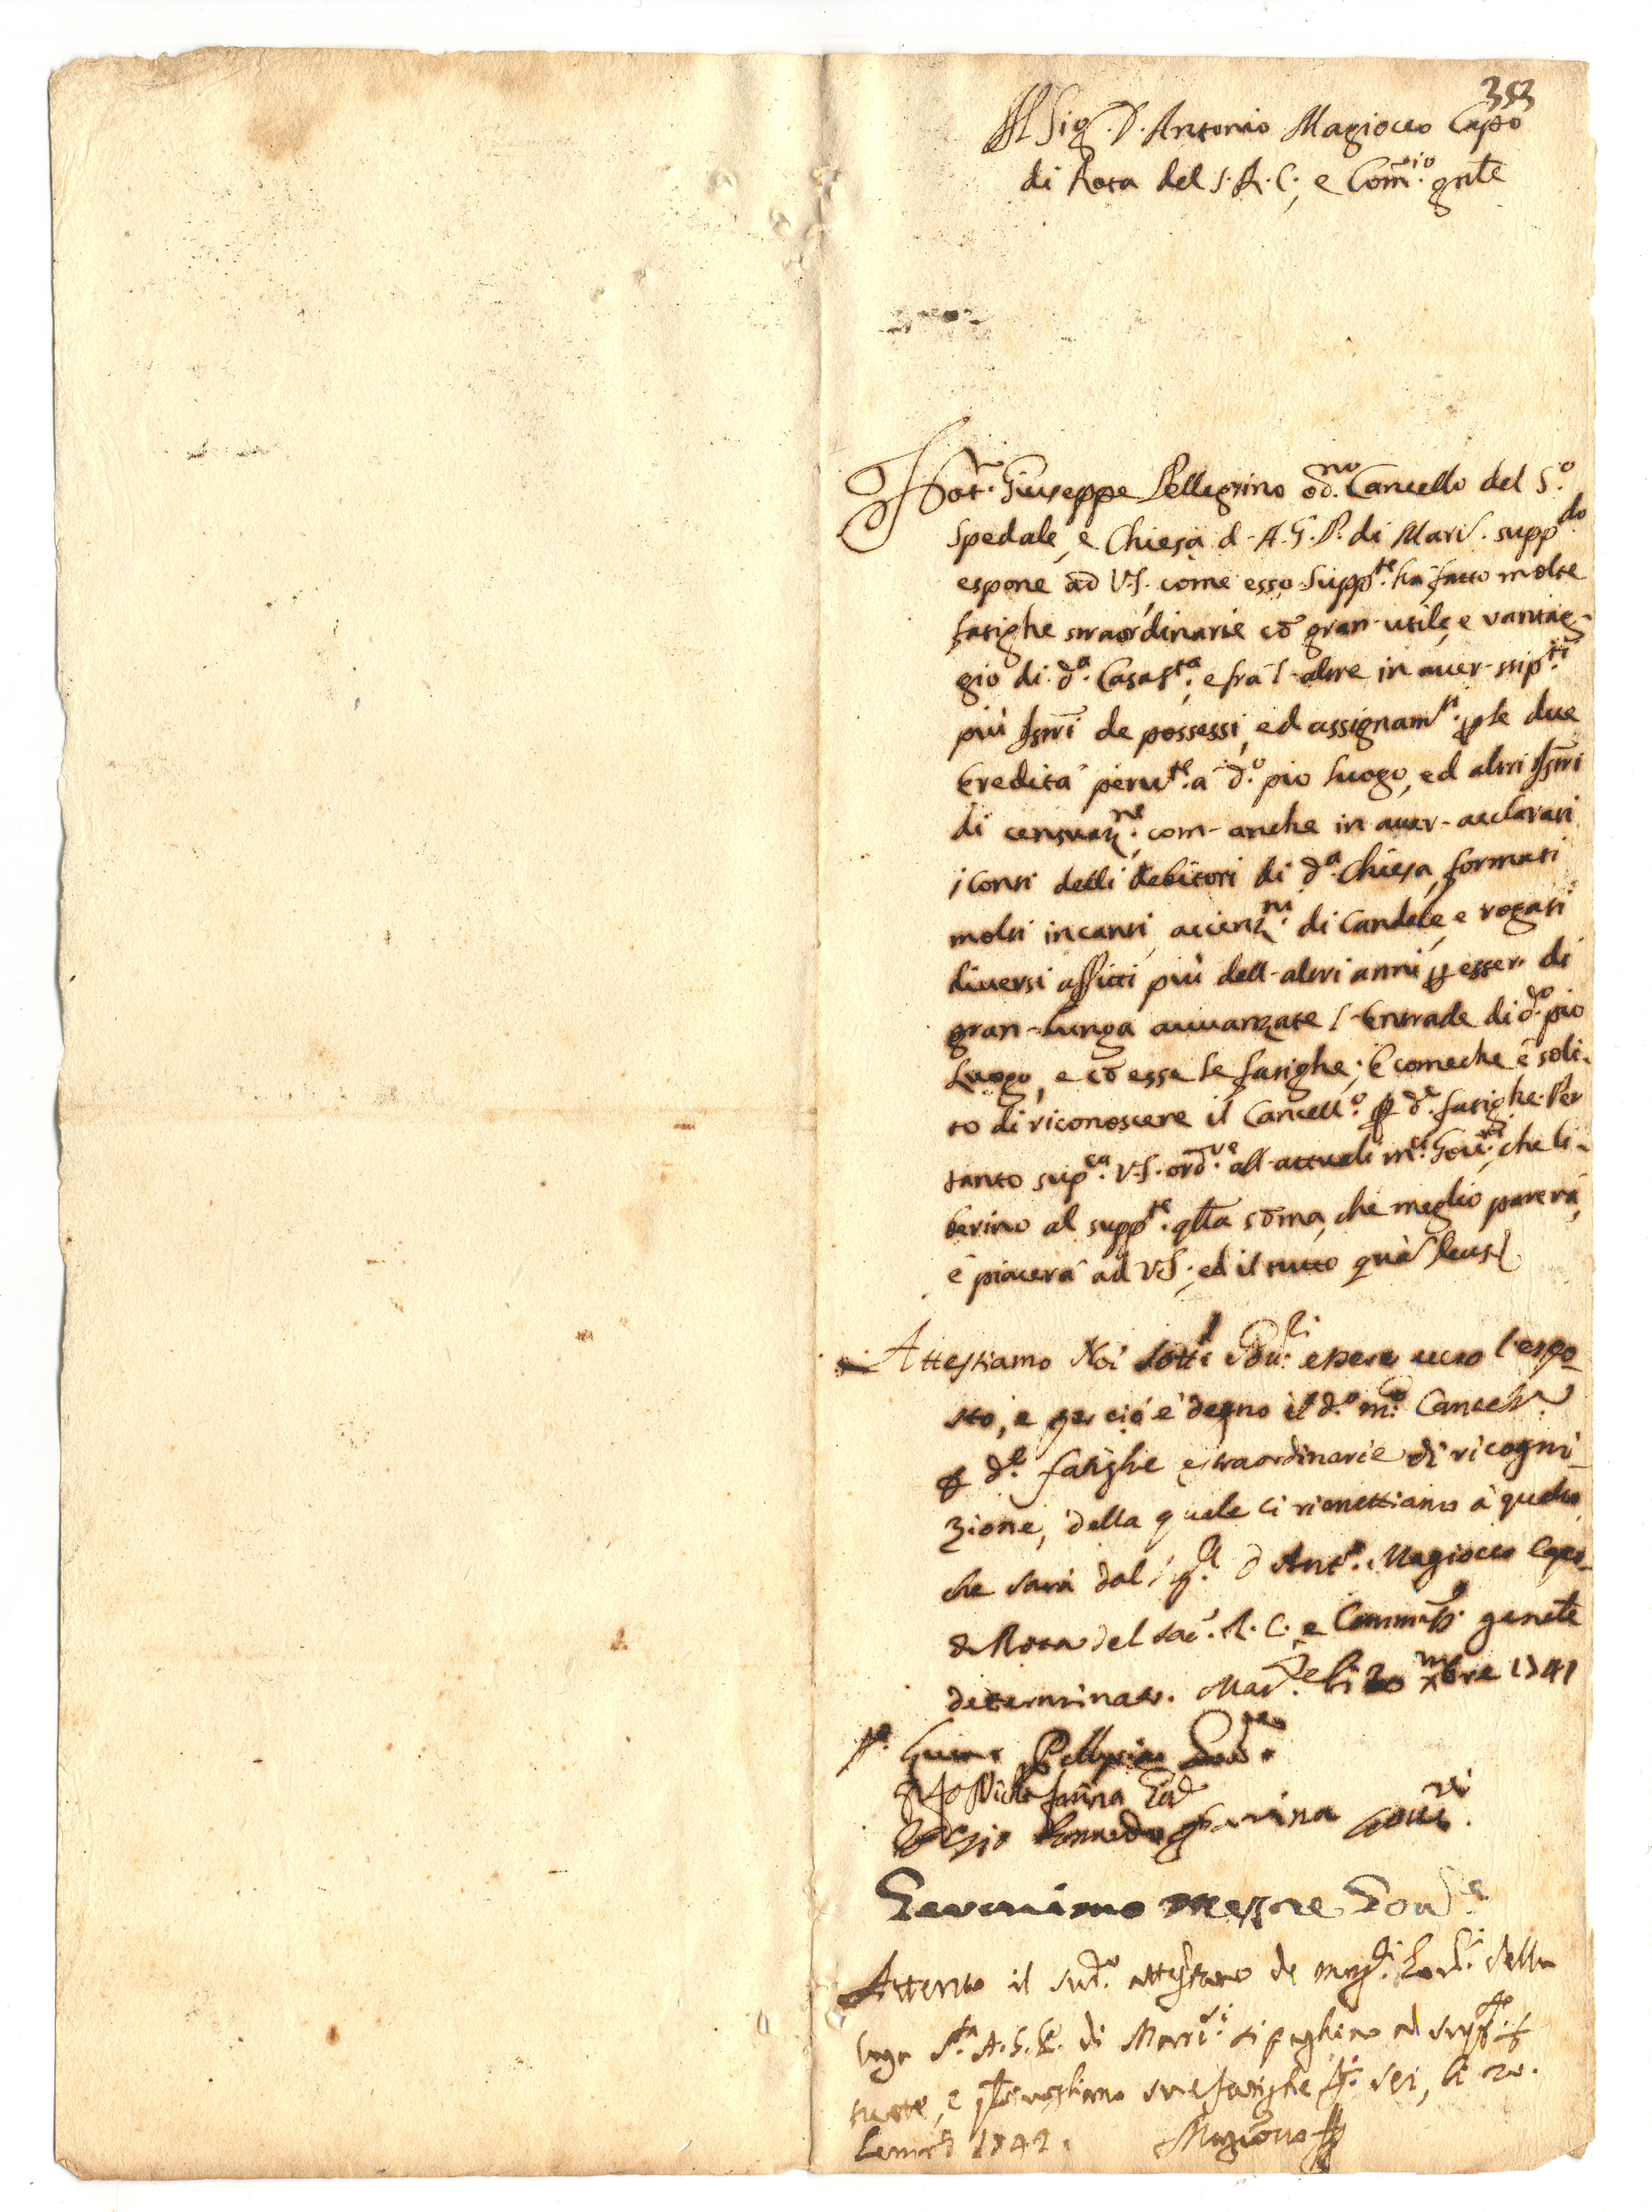 353
Al Sig.r D. Antonio Magiocco Capo
di Rota del S. R. C., e Com.rio gnle
Not.r Giuseppe Pellegrino od.no Cancello del S.o
Spedale, e Chiesa d. A. G. P. di Mari. supp.do
espone ad V.S. come esso Supp.te ha fatto molte
fatighe straordinarie cō gran utile, e vantag-
gio di d.a Casa S.ta, e frà l'altre in aver stip.ti
più Istri de possessi, ed assignam.ti p le due
Eredità peru.te à d.o pio luogo, ed altri Istri
di censuaz.ne, com- anche in aver- acclarati
i Conti delli debitori di d.a Chiesa, formati
molti incanti, accenz.ni di Candele, e rogati
diversi affitti più dell-altri anni p esser di
gran-lunga avvanzate l'Entrade di d.o pio
Luogo, e cō esse le fatighe; E comeche è soli-
to di riconoscere il Cancell.o p d.e fatighe. Per
tanto sup.ca V.S. ord.re all-attuali m.ci Gov.ri, che li-
berino al supp.te qlla sōma, che meglio parerà,
e piacerà ad V.S.; ed il tutto quà Deus
Attestiamo Noi sotti Gov.ri essere vero l'espo-
sto, e per ciò è degno il d.o m.co Cancell.ro
p d.e fatighe estraordinarie di ricogni-
zione, della quale ci rimettiamo à quello
che sarà dal Sig.r D Ant.o Magiocco Capo
di Rota del Sac. R. C. e Commis.o genele
determinato. Mar.e li 20 Xmbre 1741
Pellegrino Gov.re
Farina Gov.
Farina Gov.ri
Geronimo Mastre Gov.re
Attento il sud.o attestato de mag.ci Gov.ri della
Casa S.ta A. G. P. di Mari.no si paghino al supp.te
tutte, e qlsivogliano sue fatighe d.ti sei, li 20.
Genn.o 1742. Magiocco